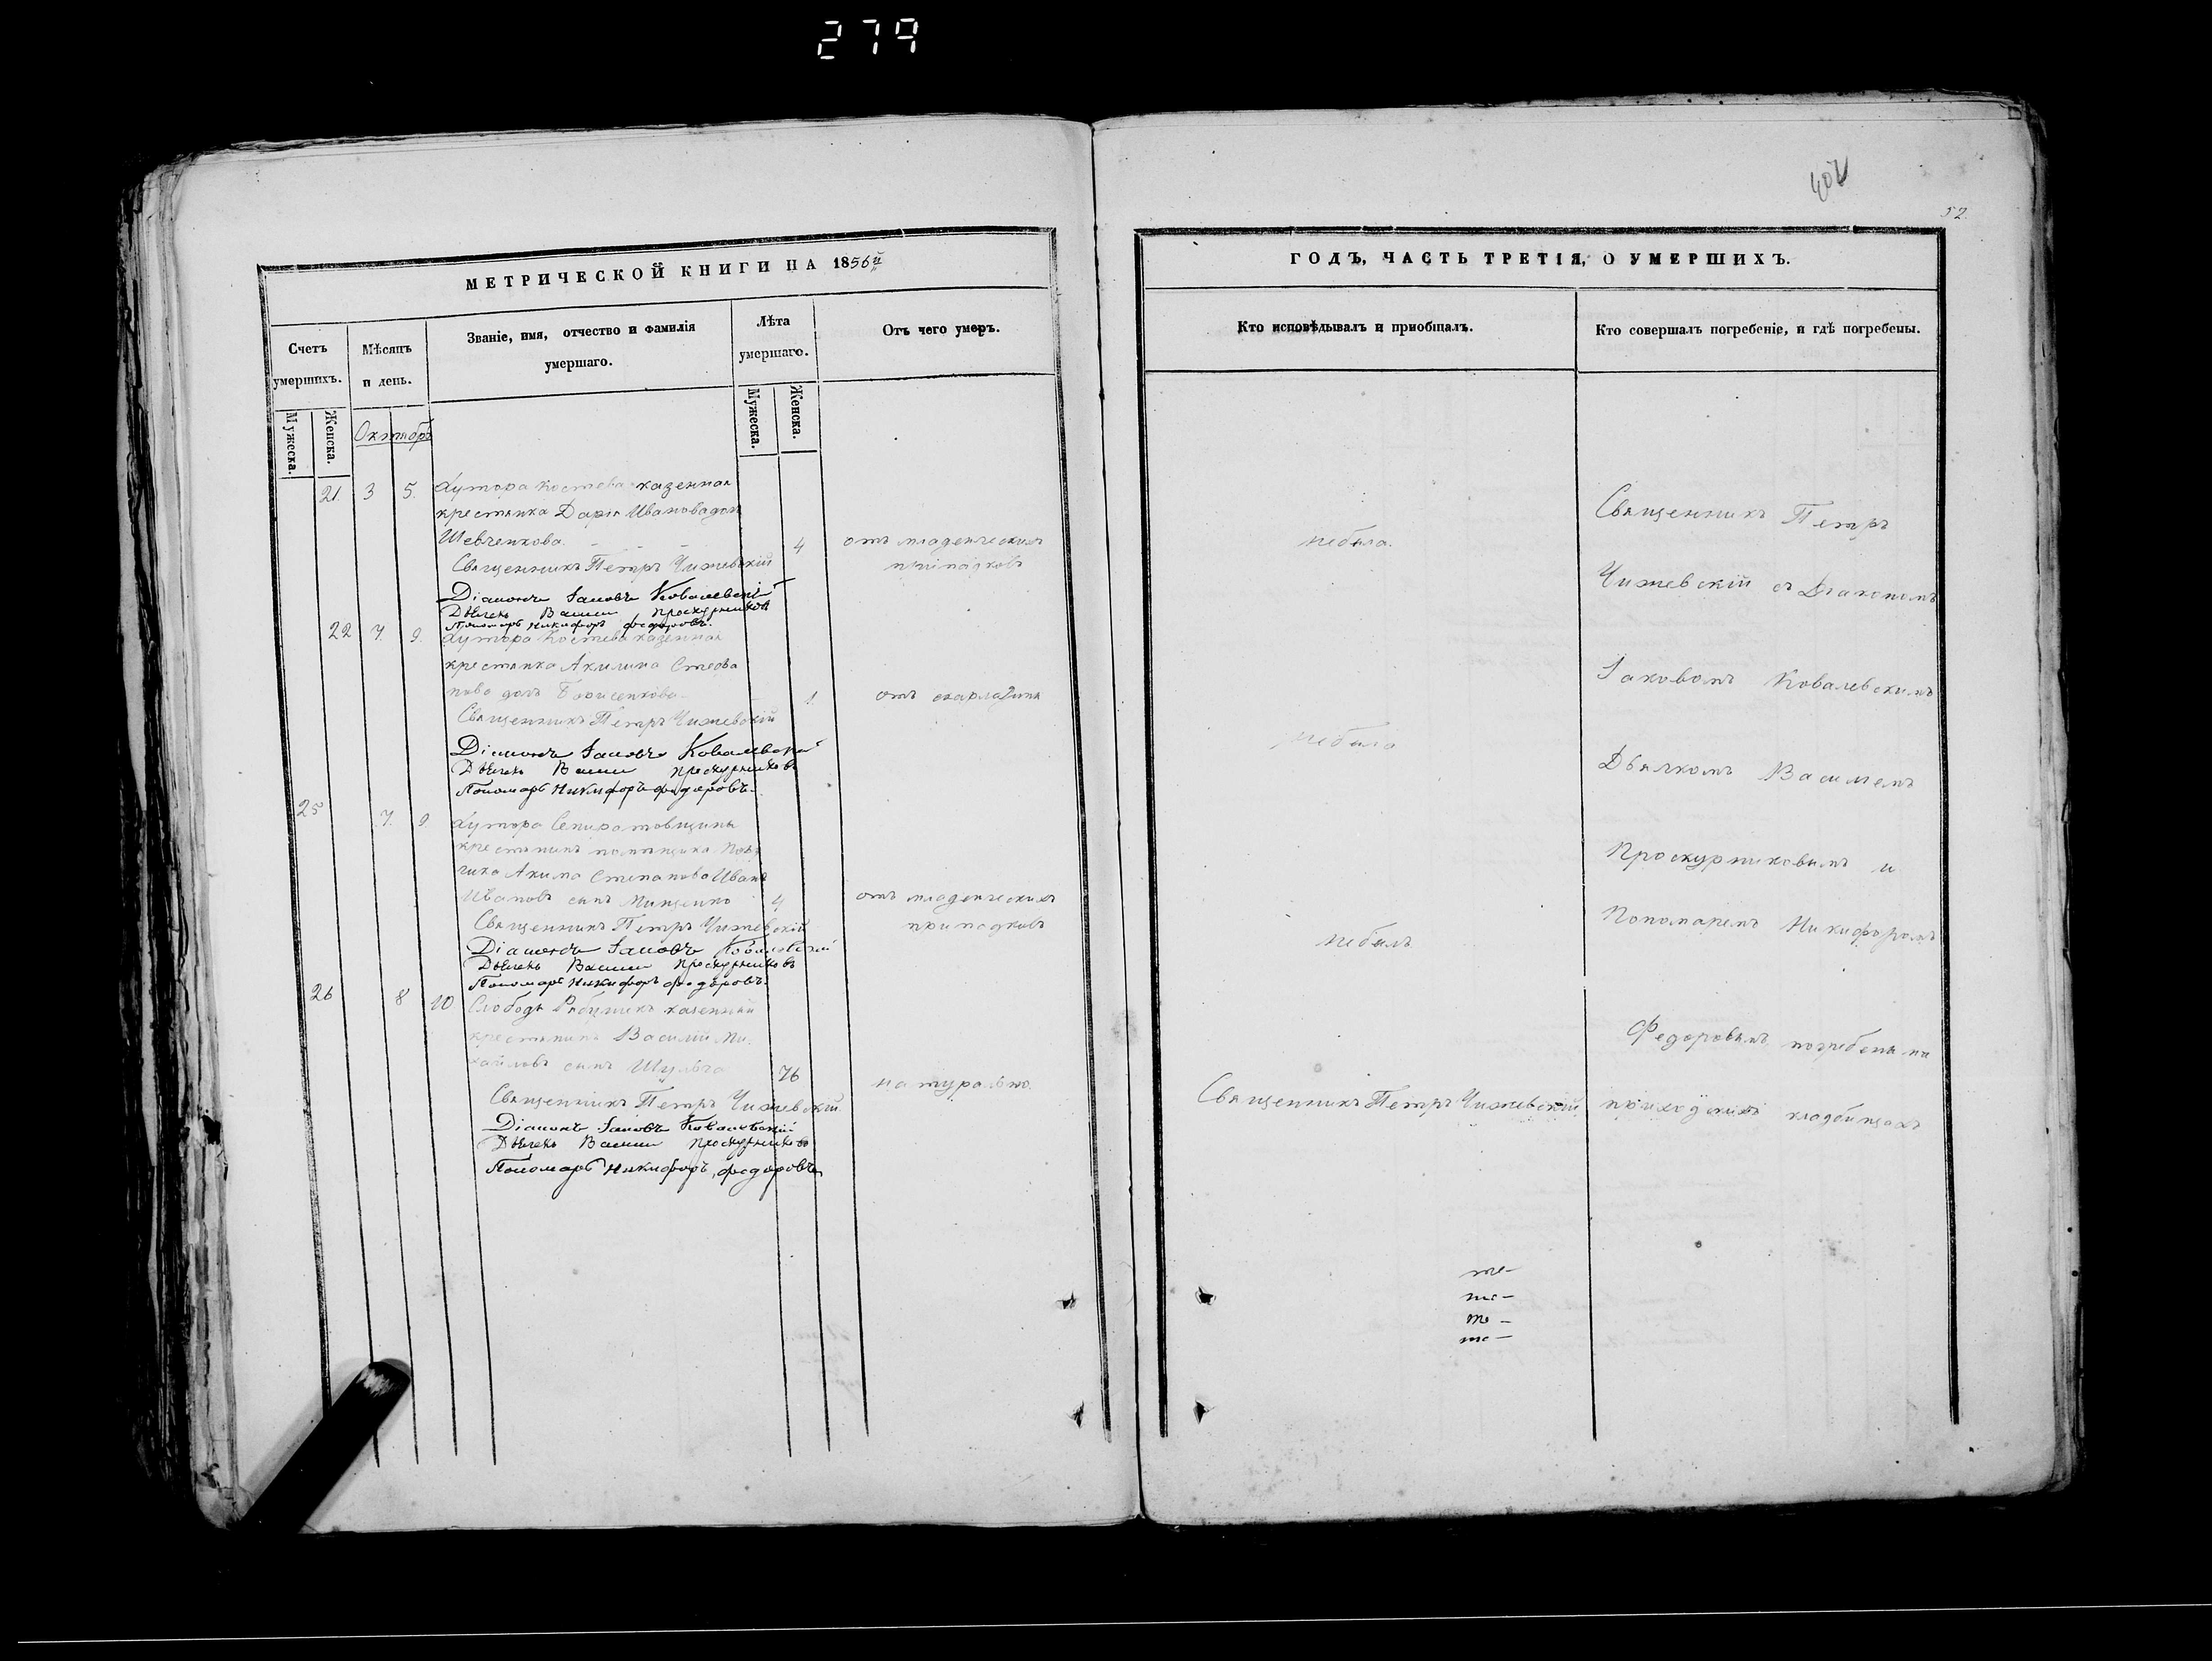 279
407
52.
МЕТРИЧЕСКОЙ КНИГИ НА 1856й
Счетъ умершихъ.
Мѣсяцъ и день.
Званіе, имя, отчество и фамилія умершаго.
Лѣта умершаго.
Отъ чего умеръ.
Мужеска.
Женска.
Мужеска.
Женска.
Октябрь
21. 3 5. Хутора Костева казенная
крестянка Дарія Иванова доч
Шевченкова. 4 отъ младенческихъ
Священникъ Петръ Чижевскій припадковъ
Діаконъ Іаковъ Ковалевскій
Дьячекъ Василій Проскурниковъ
Пономарь Никифоръ Федоровъ.
22 7. 9. Хутора Костева казенная
крестянка Акилина Стефа
нова дочь Борисенкова 1 отъ скарлатины
Священникъ Петръ Чижевскій
Діаконъ Іаковъ Ковалевскій
Дьячекъ Василій Проскурниковъ
Пономарь Никифоръ Федоровъ.
25 7. 9. Хутора
крестянинъ помѣщика
Акима Степанова Иванъ
Ивановъ сынъ Мищенко 4 отъ младенческихъ
Священникъ Петръ Чижевскій припадковъ
Діаконъ Іаковъ Ковалевскій
Дьячекъ Василій Проскурниковъ
Пономарь Никифоръ Федоровъ.
26 8 10 Слободы казенный
крестянинъ Василій Ми
хайловъ сынъ Шульга 76 натурально.
Священникъ Петръ Чижевскій
Діаконъ Іаковъ Ковалевскій
Дьячекъ Василій Проскурниковъ
Пономарь Никифоръ Федоровъ
ГОДЪ, ЧАСТЬ ТРЕТІЯ, О УМЕРШИХЪ.
Кто исповѣдывалъ и пріобщалъ.
Кто совершалъ погребеніе, и гдѣ погребены.
небыла.
небыла
небылъ
Священникъ Петръ Чижевскій
те—
те—
те—
те—
Священникъ Петръ
Чижевскій съ Діакономъ
Іаковомъ Ковалевскимъ
Дьячкомъ Василіемъ
Проскурниковымъ и
Пономаремъ Никифоромъ
Федоровымъ, погребены на
приходскихъ кладбищахъ